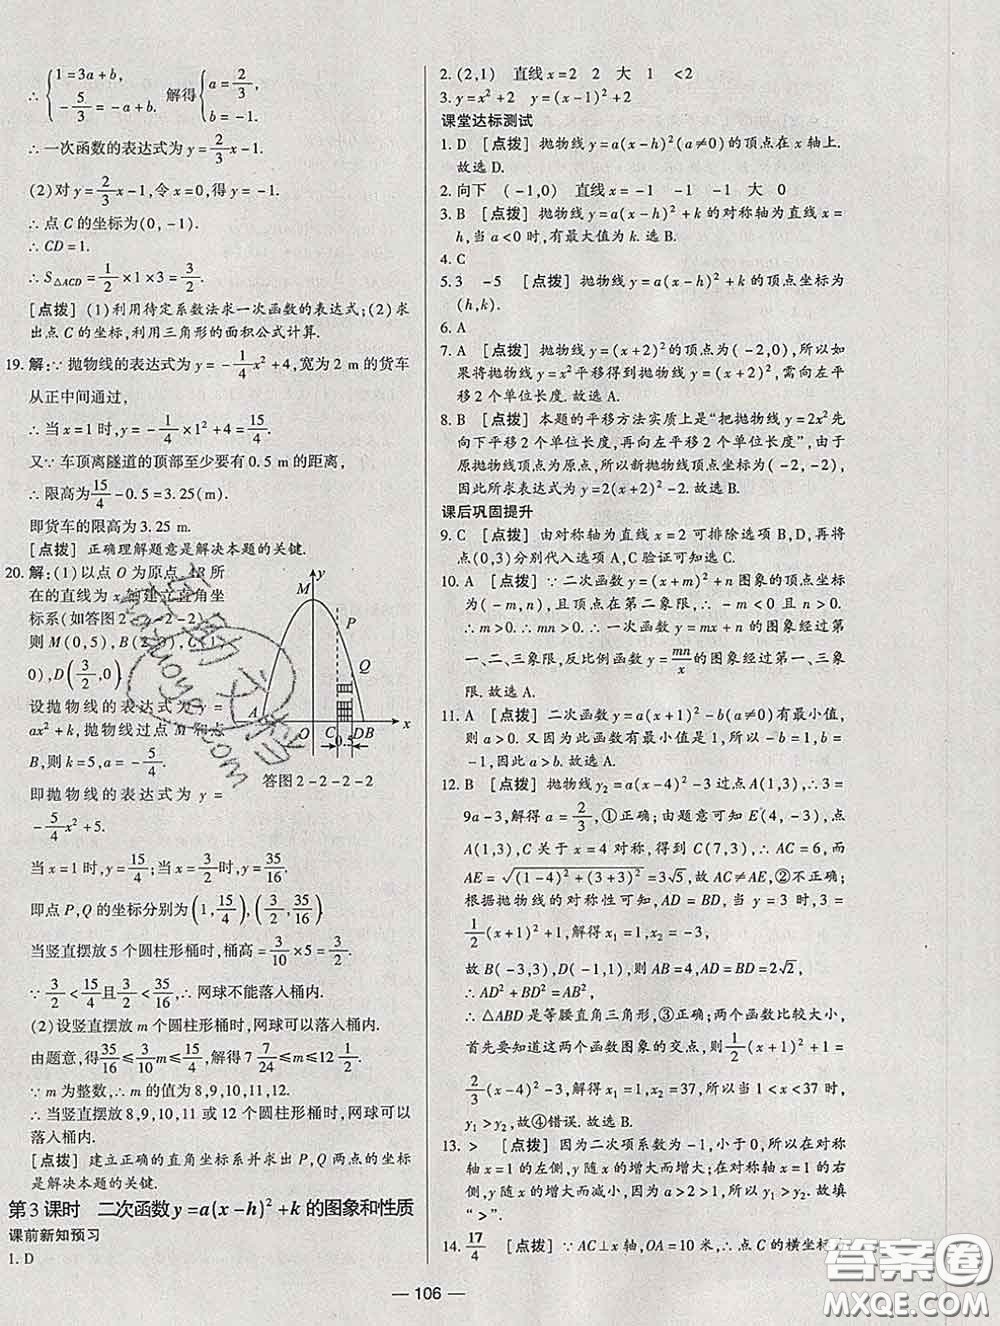 ∴ {1=3a+b, -5/3=-a+b. 解得 {a=2/3, b=-1.
∴ 一次函数的表达式为 y=2/3x-1.
(2)对 y=2/3x-1,令 x=0,得 y=-1.
∴ 点 C 的坐标为(0,-1).
∴ CD=1.
∴ S△ACD=1/2×1×3=3/2.
[点拨] (1)利用待定系数法求一次函数的表达式;(2)求
出点 C 的坐标,利用三角形的面积公式计算.
19. 解:∵ 抛物线的表达式为 y=-1/4x²+4,宽为 2 m 的货车
从正中间通过,
∴ 当 x=1 时,y=-1/4×1²+4=15/4.
又∵ 车顶离隧道的顶部至少要有 0.5 m 的距离,
∴ 限高为15/4-0.5=3.25(m).
即货车的限高为 3.25 m.
[点拨] 正确理解题意是解决本题的关键.
20. 解:(1)以点 O 为原点,AB 所
在的直线为 x 轴建立直角坐
标系(如答图 2-2-2-2),
则 M(0,5),B(2,0),C(1,
0),D(3/2,0).
设抛物线的表达式为 y=
ax²+k,抛物线过点 M 和点
B,则 k=5,a=-5/4.
即抛物线的表达式为 y=
-5/4x²+5.
y
M
P
Q
A
O
C
DB
x
0.5
答图 2-2-2-2
当 x=1 时,y=15/4;当 x=3/2时,y=35/16.
即点 P,Q 的坐标分别为(1,15/4),(3/2,35/16).
当竖直摆放 5 个圆柱形桶时,桶高=3/10×5=3/2.
∵ 3/2<15/4且3/2<35/16,∴ 网球不能落入桶内.
(2)设竖直摆放 m 个圆柱形桶时,网球可以落入桶内.
由题意,得35/16≤3/10m≤15/4,解得 7 7/24≤m≤12 1/2.
∵ m 为整数,∴ m 的值为 8,9,10,11,12.
∴ 当竖直摆放 8,9,10,11 或 12 个圆柱形桶时,网球可以
落入桶内.
[点拨] 建立正确的直角坐标系并求出 P,Q 两点的坐标
是解决本题的关键.
第 3 课时 二次函数 y=a(x-h)²+k 的图象和性质
课前新知预习
1. D
2. (2,1) 直线 x=2 2 大 1 <2
3. y=x²+2 y=(x-1)²+2
课堂达标测试
1. D [点拨] 抛物线 y=a(x-h)²(a≠0)的顶点在 x 轴上.
故选 D.
2. 向下 (-1,0) 直线 x=-1 -1 -1 大 0
3. B [点拨] 抛物线 y=a(x-h)²+k 的对称轴为直线 x=
h,当 a<0 时,有最大值为 k. 选 B.
4. C
5. 3 -5 [点拨] 抛物线 y=a(x-h)²+k 的顶点坐标为
(h,k).
6. A
7. A [点拨] 抛物线 y=(x+2)²的顶点为(-2,0),所以如
果将抛物线 y=x²平移得到抛物线 y=(x+2)²,需向左平
移 2 个单位长度. 故选 A.
8. B [点拨] 本题的平移方法实质上是“把抛物线 y=2x²先
向下平移 2 个单位长度,再向左平移 2 个单位长度”,由于
原抛物线顶点为原点,所以新抛物线顶点为(-2,-2),
因此所求表达式为 y=2(x+2)²-2. 故选 B.
课后巩固提升
9. C [点拨] 由对称轴为直线 x=2 可排除选项 B,D,再将
点(0,3)分别代入选项 A,C 验证可知选 C.
10. A [点拨] ∵ 二次函数 y=(x+m)²+n 图象的顶点坐标
为(-m,n),且顶点在第二象限,∴ -m<0 且 n>0.
∴ m>0. ∴ mn>0. ∴ 一次函数 y=mx+n 的图象经过第
一、二、三象限,反比例函数 y=mn/x的图象经过第一、三象
限. 故选 A.
11. A [点拨] 二次函数 y=a(x+1)²-b(a≠0)有最小值,
则 a>0. 又因为此函数有最小值是 1,所以 -b=1,即 b=
-1,因此 a>b. 故选 A.
12. B [点拨] 抛物线 y₂=a(x-4)²-3 过点 A(1,3),∴ 3=
9a-3,解得 a=2/3,①正确;由题意可知 E(4,-3),点
A(1,3),C 关于 x=4 对称,得到 C(7,3),∴ AC=6,而
AE=√((1-4)²+(3+3)²)=3√5,故 AC≠AE,②不正确;
根据抛物线的对称性可知,当 y=3 时,3=
1/2(x+1)²+1,解得 x₁=1,x₂=-3,
故 B(-3,3),D(-1,1),所以 AB=4,AD=BD=2√2,
∴ AD²+BD²=AB²,
∴ △ABD 是等腰直角三角形,③正确;两个函数比较大小,
首先要知道这两个函数图象的交点,则1/2(x+1)²+1=
2/3(x-4)²-3,解得 x₁=1,x₂=37,所以当 1<x<37 时,
y₁>y₂,故④错误. 故选 B.
13. > [点拨] 因为二次项系数为 -1,小于 0,所以在对称
轴 x=1 的左侧,y 随 x 的增大而增大;在对称轴 x=1
的右侧,y 随 x 的增大而减小,因为 a>2>1,所以 y₁>y₂. 故填
“>”.
14. 17/4 [点拨] ∵ AC⊥x 轴,OA=10 米,∴ 点 C 的横坐标
— 106 —
答案圈
MXQE.COM